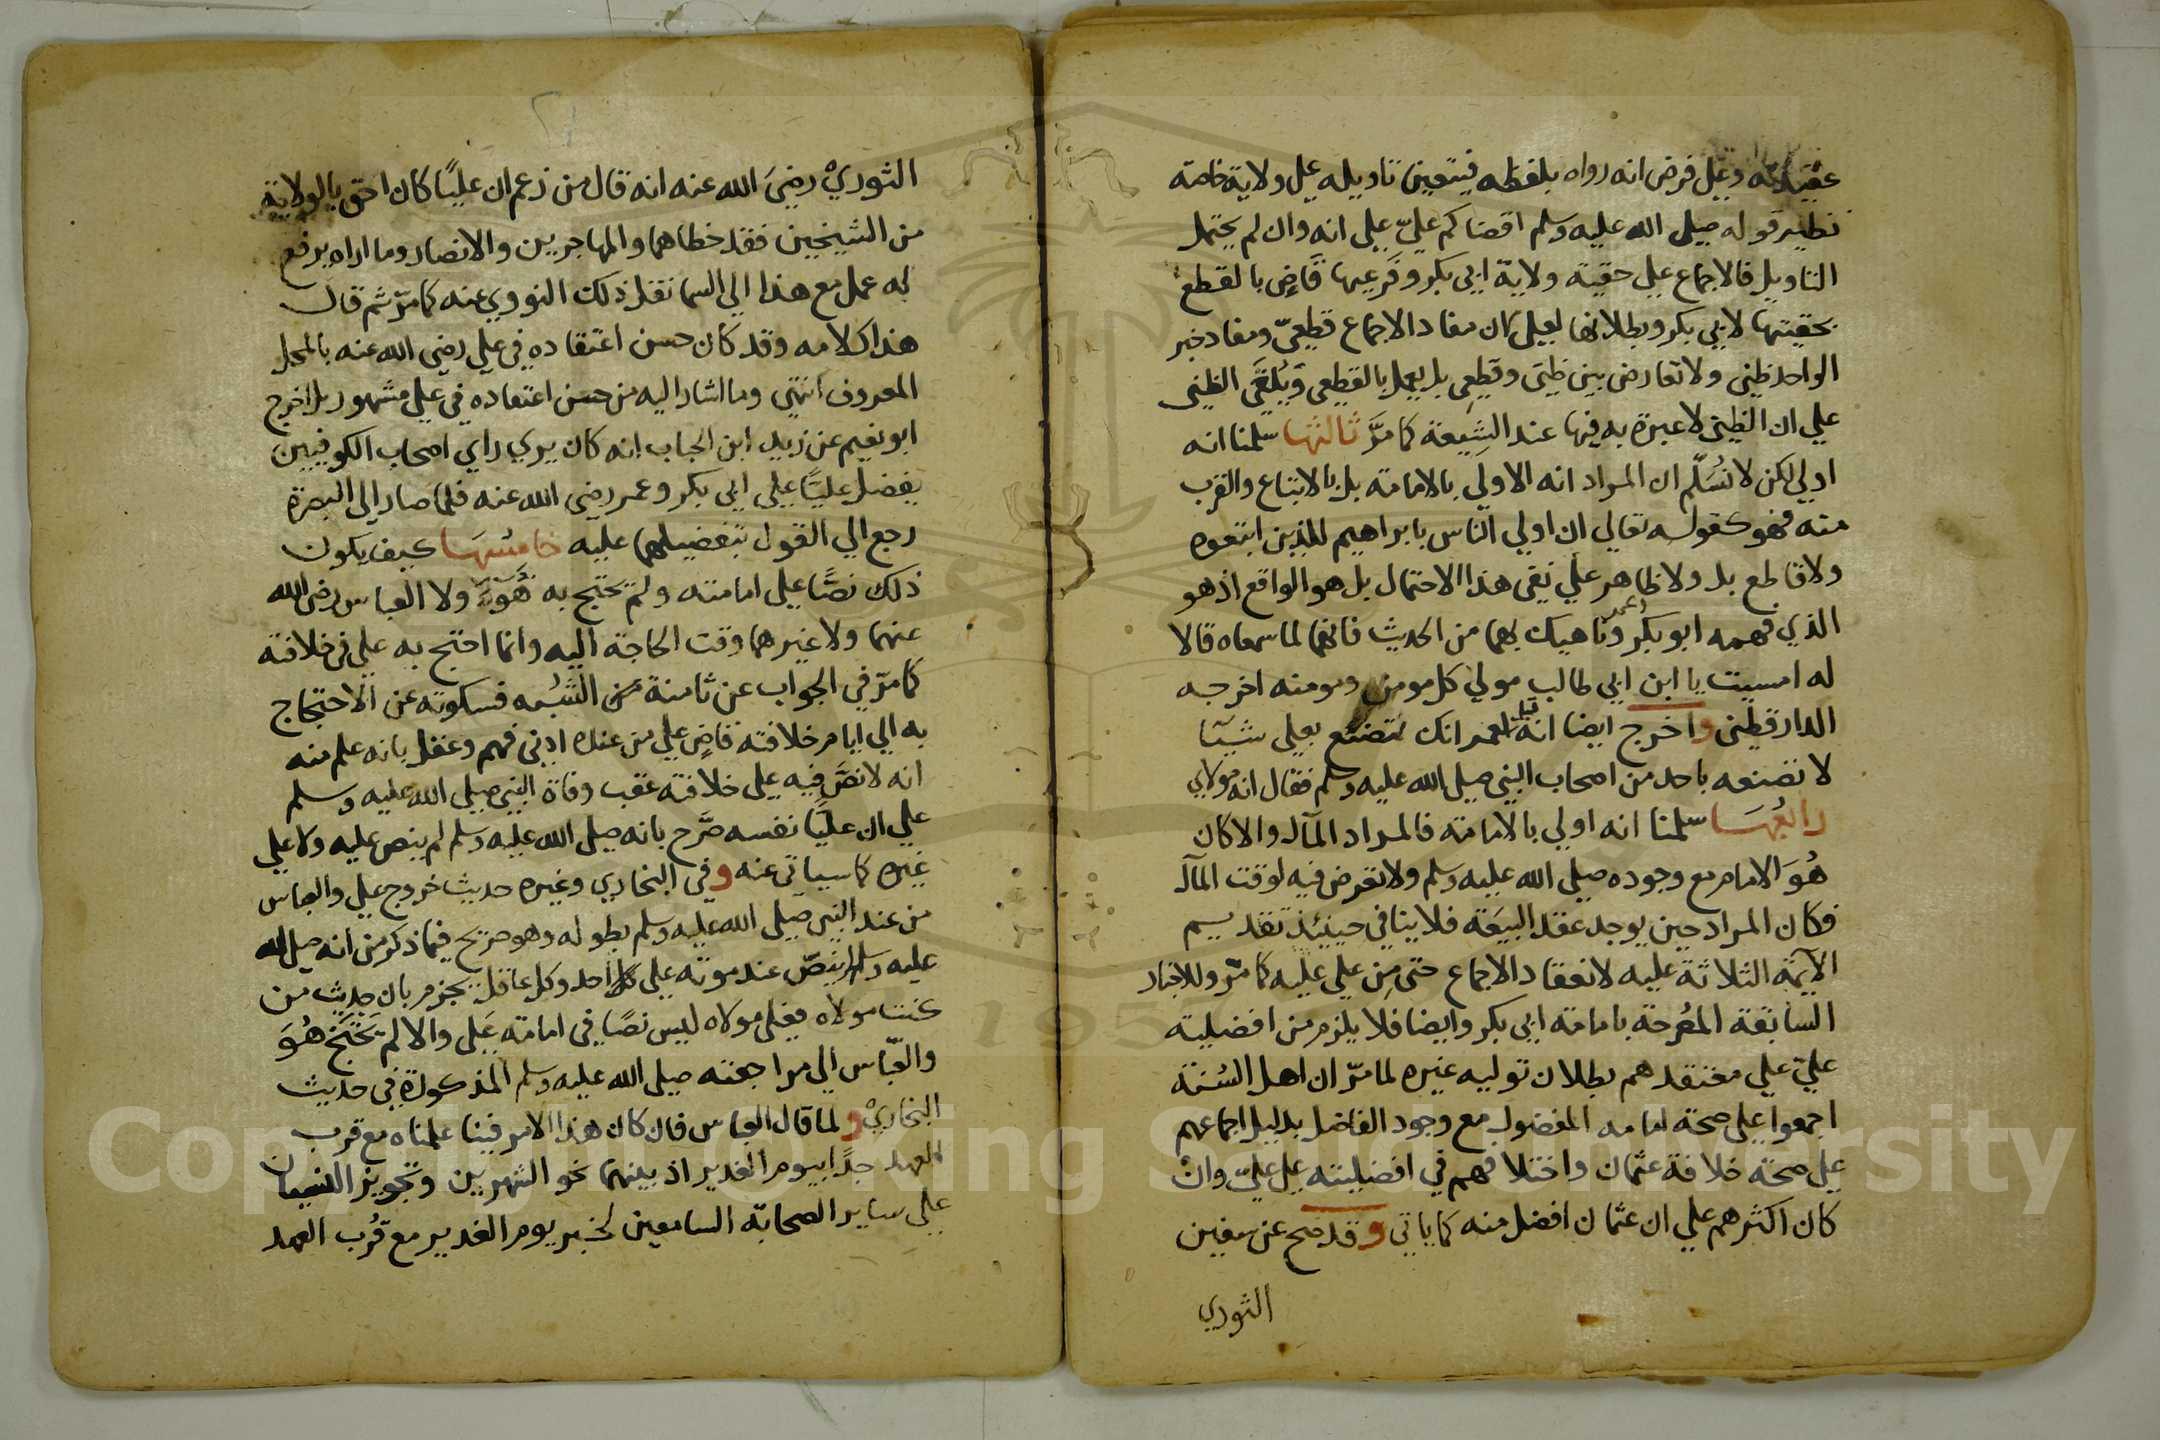 عقيدته وعلى فرض انه رواه بلفظه فيتعين تاويله على ولاية خاصة
نظير قوله صلى الله عليه وسلم اقضاكم علي على انه وان لم يحتمل
التاويل فالاجماع على حقية ولاية ابي بكر وفرعيها قاض بالقطع
بحقيتها لابي بكر وبطلانها لعلي لان مفاد الاجماع قطعي ومفاد خبر
الواحد ظني ولا تعارض بين ظني وقطعي بل يعمل بالقطعي ويلغى الظني
على ان الظني لا عبرة به فيها عند الشيعة كما مر ثالثها سلمنا انه
اولى لكن لا نسلم ان المراد انه الاولى بالامامة بل بالاتباع والقرب
منه فهو كقوله تعالى ان اولى الناس بابراهيم للذين اتبعوه
ولا قاطع بل ولا ظاهر على نفي هذا الاحتمال بل هو الواقع اذ هو
الذي فهمه ابو بكر وعمر وناهيك بهما من الحديث فانهما لما سمعاه قالا
له امسيت يا ابن ابي طالب مولى كل مومن ومومنه اخرجه
الدارقطني واخرج ايضا انه قيل لعمر انك تصنع بعلي شيئا
لا تصنعه باحد من اصحاب النبي صلى الله عليه وسلم فقال انه مولاي
رابعها سلمنا انه اولى بالامامة فالمراد المآل والا كان
هو الامام مع وجوده صلى الله عليه وسلم ولا تعرض فيه لوقت المآل
فكان المراد حين يوجد عقد البيعة فلا ينافي حينئذ تقديم
الايمة الثلاثة عليه لانعقاد الاجماع حتى من علي عليه كما مر وللاخبار
السابقة المصرحة بامامة ابي بكر وايضا فلا يلزم من افضلية
علي على معتقدهم بطلان توليه غيره لما مر ان اهل السنة
اجمعوا على صحة امامه المفضول مع وجود الفاضل بدليل اجماعهم
على صحة خلافة عثمان واختلافهم في افضليته على علي وان
كان اكثرهم على ان عثمان افضل منه كما ياتي وقد صح عن سفين
الثوري
الثوري رضي الله عنه انه قال من زعم ان عليا كان احق بالولاية
من الشيخين فقد خطاهما والمهاجرين والانصار وما اراه يرفع
له عمل مع هذا الى السما نقل ذلك النووي عنه كما مر ثم قال
هذا كلامه وقد كان حسن اعتقاده في علي رضي الله عنه بالمحل
المعروف انتهى وما اشار اليه من حسن اعتقاده في علي مشهور بل اخرج
ابو نعيم عن زيد ابن الحباب انه كان يري راي اصحاب الكوفيين
يفضل عليا على ابي بكر وعمر رضي الله عنه فلما صار الى البصرة
رجع الى القول بتفضيلهما عليه خامسها كيف يكون
ذلك نصا على امامته ولم يحتج به هو ولا العباس رضي الله
عنهما ولا غيرهما وقت الحاجة اليه وانما احتج به علي في خلافة
كما مر في الجواب عن ثامنة من الشبه فسكوته عن الاحتجاج
به الى ايام خلافته قاض على من عنده ادنى فهم وعقل بانه علم منه
انه لا نص فيه على خلافته عقب وفاة النبي صلى الله عليه وسلم
على ان عليا نفسه صرح بانه صلى الله عليه وسلم لم ينص عليه ولا على
غيره كما سياتي عنه وفي البخاري وغيره حديث خروج علي والعباس
من عند النبي صلى الله عليه وسلم بطوله وهو صريح فيما ذكر من انه صلى الله
عليه وسلم لم ينص عند موته على احد وكل عاقل يجزم بان حديث من
كنت مولاه فعلي مولاه ليس نصا في امامته علي والا لم يحتج هو
والعباس الى مراجعته صلى الله عليه وسلم المذكورة في حديث
البخاري ولما قال العباس فان كان هذا الامر فينا علمناه مع قرب
العهد جدا بيوم الغدير اذ بينهما نحو الشهرين وتجويز النسيان
على ساير الصحابة السامعين لخبر يوم الغدير مع قرب العهد
Copyright © King Saud University
195